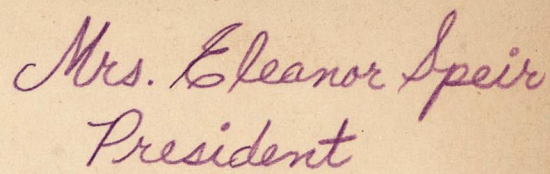 Mrs. Eleanor Speir
President